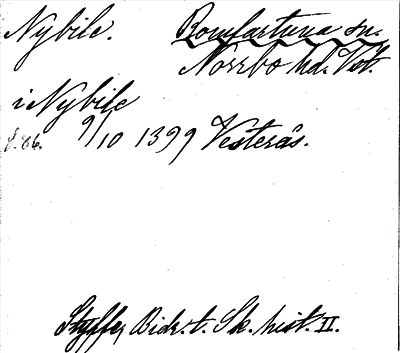 Nybile. Romfartuna sn.
Norrbo hd. Vstl.
i Nybile
s. 86. 9/10 1399 Vesterås.
Styffe, Bidr. t. Sk. hist. II.